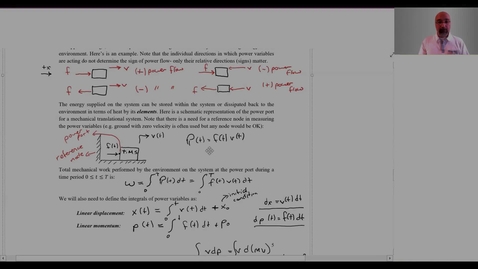 environment. Here's is an example. Note that the individual directions in which power variables
are acting do not determine the sign of power flow- only their relative directions (signs) matter.
+x
f v (+) power flow f v (-) power flow
f v (-) " " f v (+) power flow
The energy supplied on the system can be stored within the system or dissipated back to the
environment in terms of heat by its elements. Here is a schematic representation of the power port
for a mechanical translational system. Note that there is a need for a reference node in measuring
the power variables (e.g. ground with zero velocity is often used but any node would be OK)
power port v(t)
reference node f(t) P(t) = f(t) v(t)
Total mechanical work performed by the environment on the system at the power port during a
time period 0 ≤ t ≤ T is:
W = ∫₀ᵀ P(t) dt = ∫₀ᵀ f(t) v(t) dt
initial condition
We will also need to define the integrals of power variables as:
Linear displacement: x(t) = ∫₀ᵗ v(t) dt + x₀ dx = v(t) dt
Linear momentum: p(t) = ∫₀ᵗ f(t) dt + p₀ dp(t) = f(t) dt
∫ v dp = ∫ v d(mv)